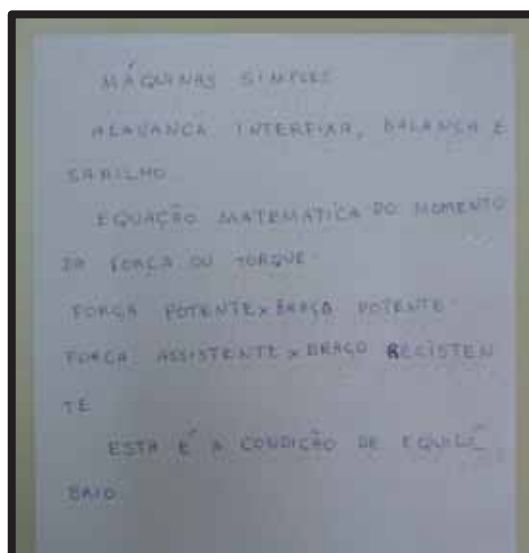 MÁQUINAS SIMPLES
ALAVANCA INTERFIXA, BALANÇA E
SARILHO
EQUAÇÃO MATEMÁTICA DO MOMENTO
DA FORÇA OU TORQUE
FORÇA POTENTE x BRAÇO POTENTE
FORÇA ASSISTENTE x BRAÇO RECISTEN
TE
ESTA É A CONDIÇÃO DE EQUILÍ
BRIO